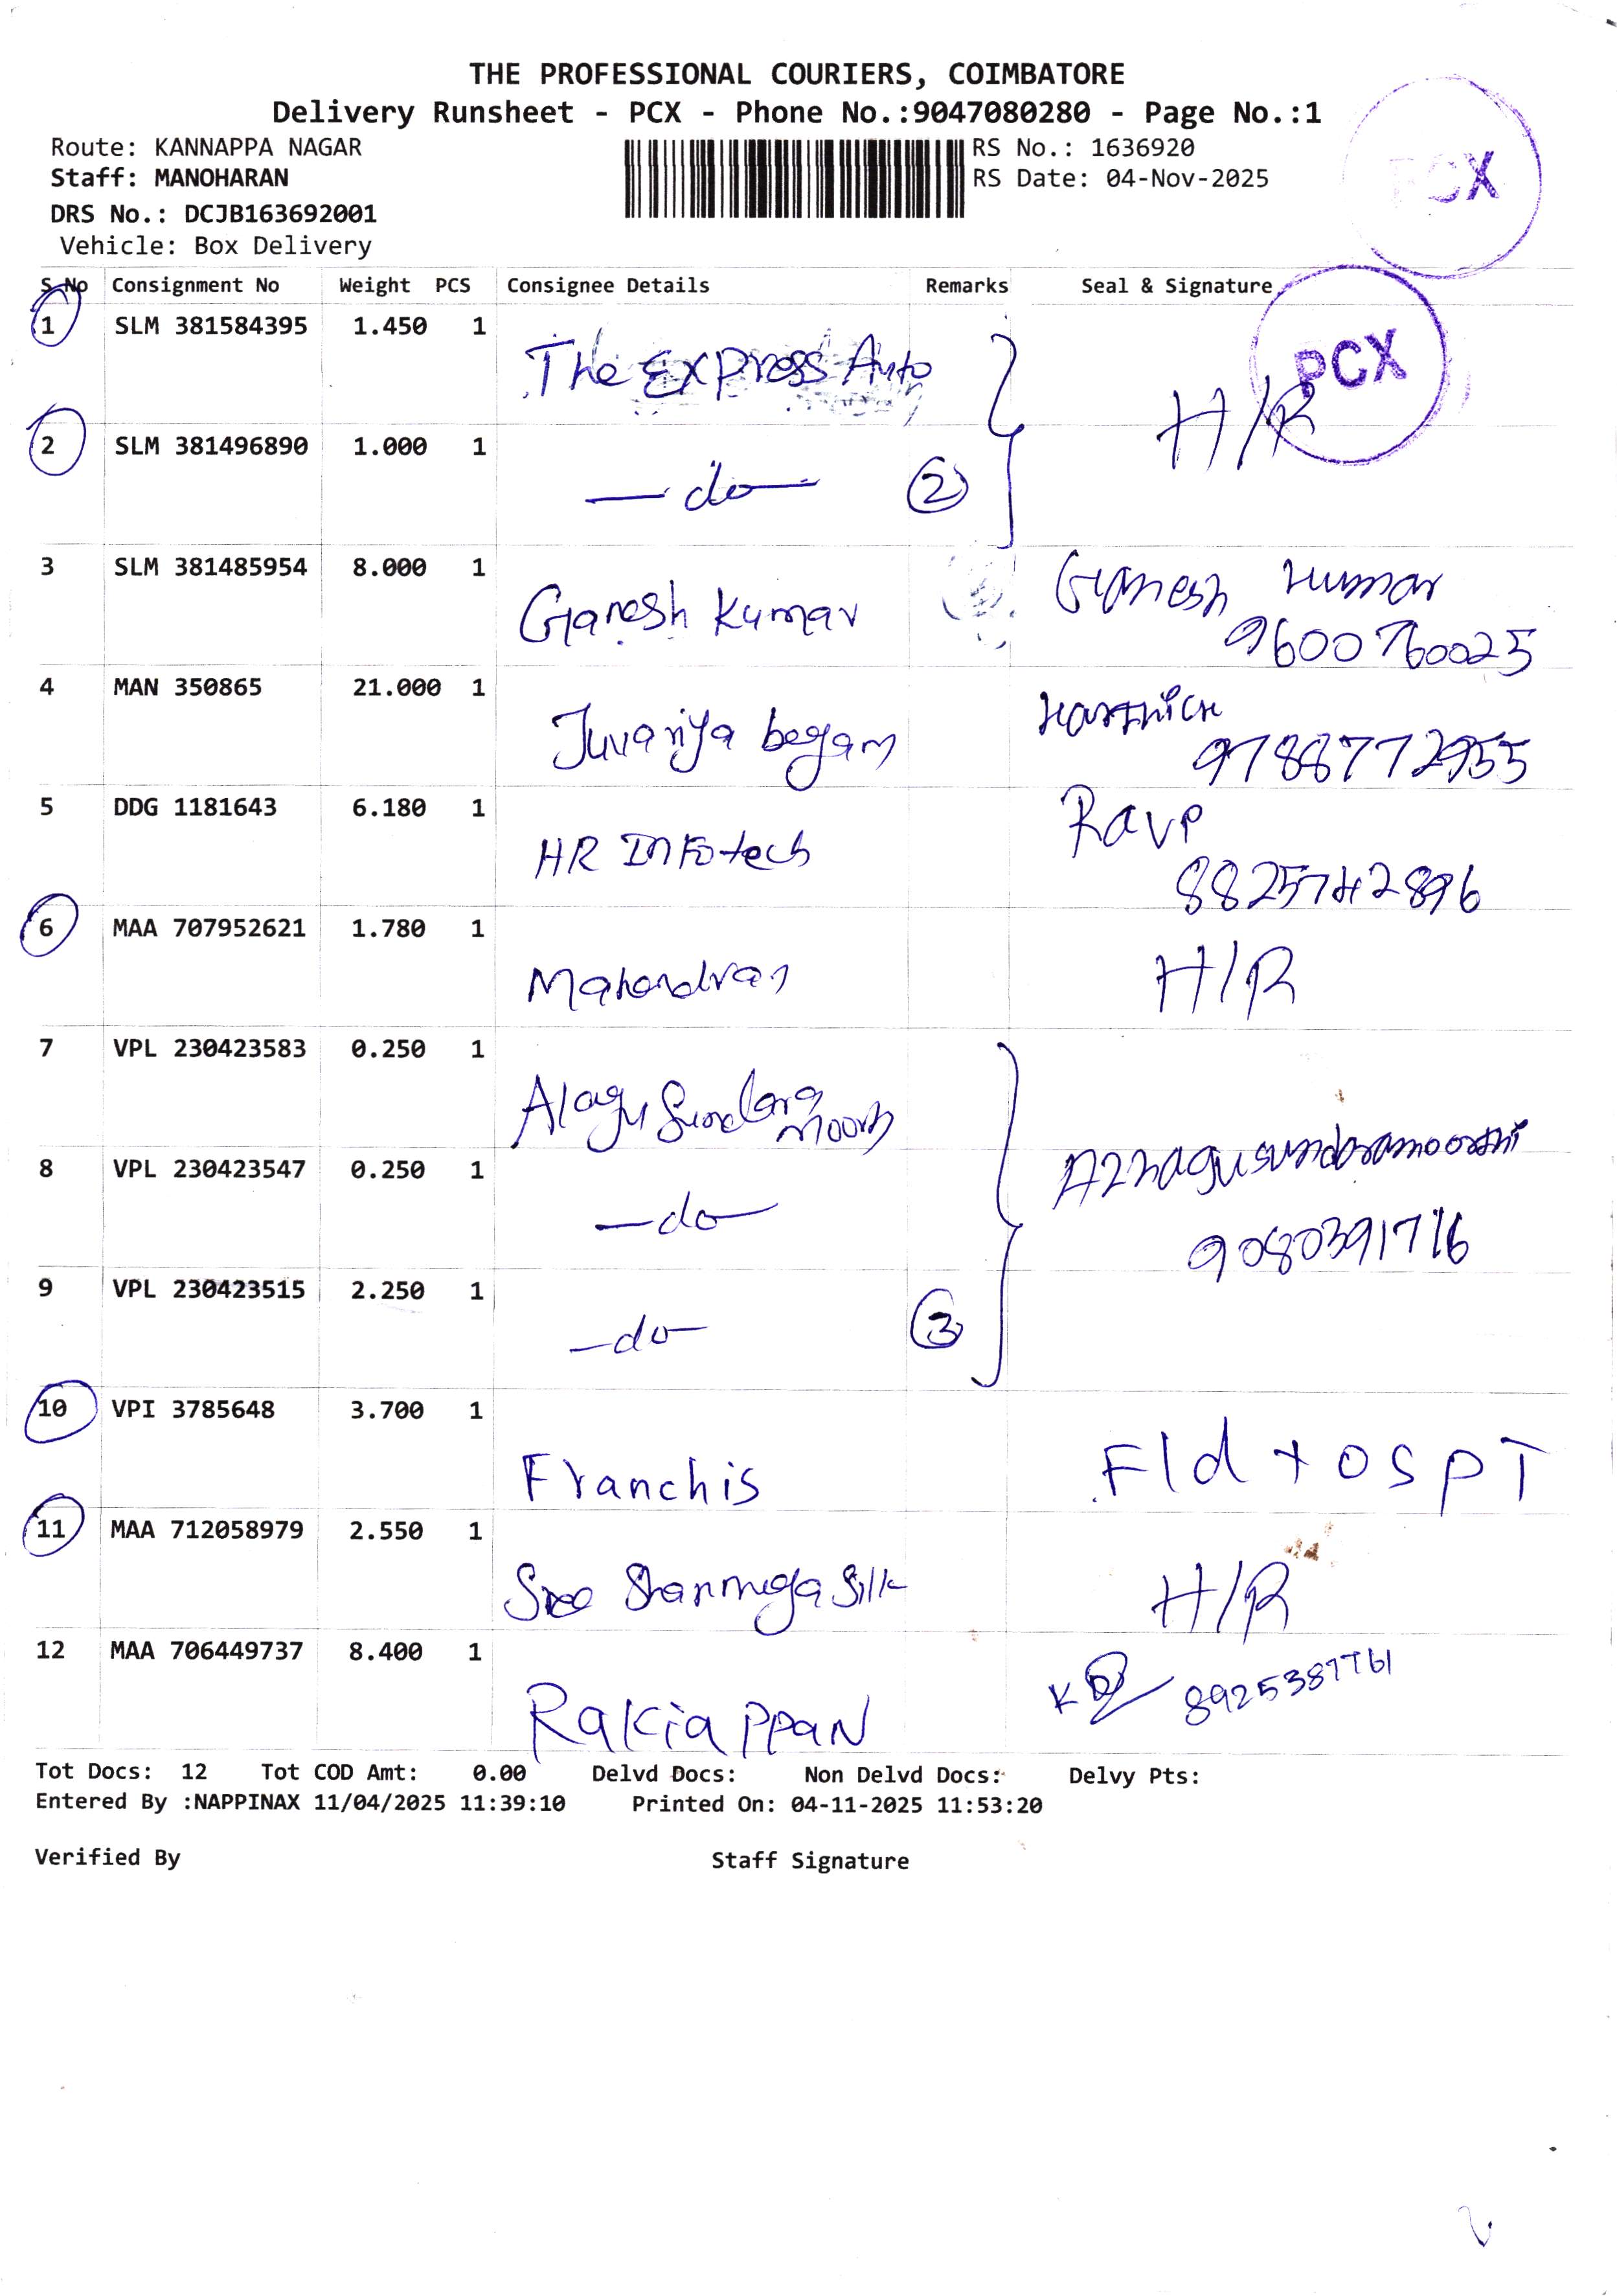 THE PROFESSIONAL COURIERS, COIMBATORE
Delivery Runsheet - PCX - Phone No.:9047080280 - Page No.:1
Route: KANNAPPA NAGAR
Staff: MANOHARAN
DRS No.: DCJB163692001
Vehicle: Box Delivery
RS No.: 1636920
RS Date: 04-Nov-2025
PCX
S.No Consignment No Weight PCS Consignee Details Remarks Seal & Signature
1 SLM 381584395 1.450 1 The Express Auto
PCX
H/R
2 SLM 381496890 1.000 1 -do- 2
3 SLM 381485954 8.000 1 Ganesh Kumar Ganesh Kumar
9600760025
4 MAN 350865 21.000 1 Juvariya begam Karthick
9788772955
5 DDG 1181643 6.180 1 HR Infotech Ravi
8825742896
6 MAA 707952621 1.780 1 Mahendran H/R
7 VPL 230423583 0.250 1 Alagu Sundara
moorth
8 VPL 230423547 0.250 1 -do- Azhagusundramoorthi
9080391716
9 VPL 230423515 2.250 1 -do- 3
10 VPI 3785648 3.700 1 Franchis Fld + OSPT
11 MAA 712058979 2.550 1 Sree Shanmuga Silk H/R
12 MAA 706449737 8.400 1 Rakiappan 8925387761
Tot Docs: 12 Tot COD Amt: 0.00 Delvd Docs: Non Delvd Docs: Delvy Pts:
Entered By :NAPPINAX 11/04/2025 11:39:10 Printed On: 04-11-2025 11:53:20
Verified By Staff Signature